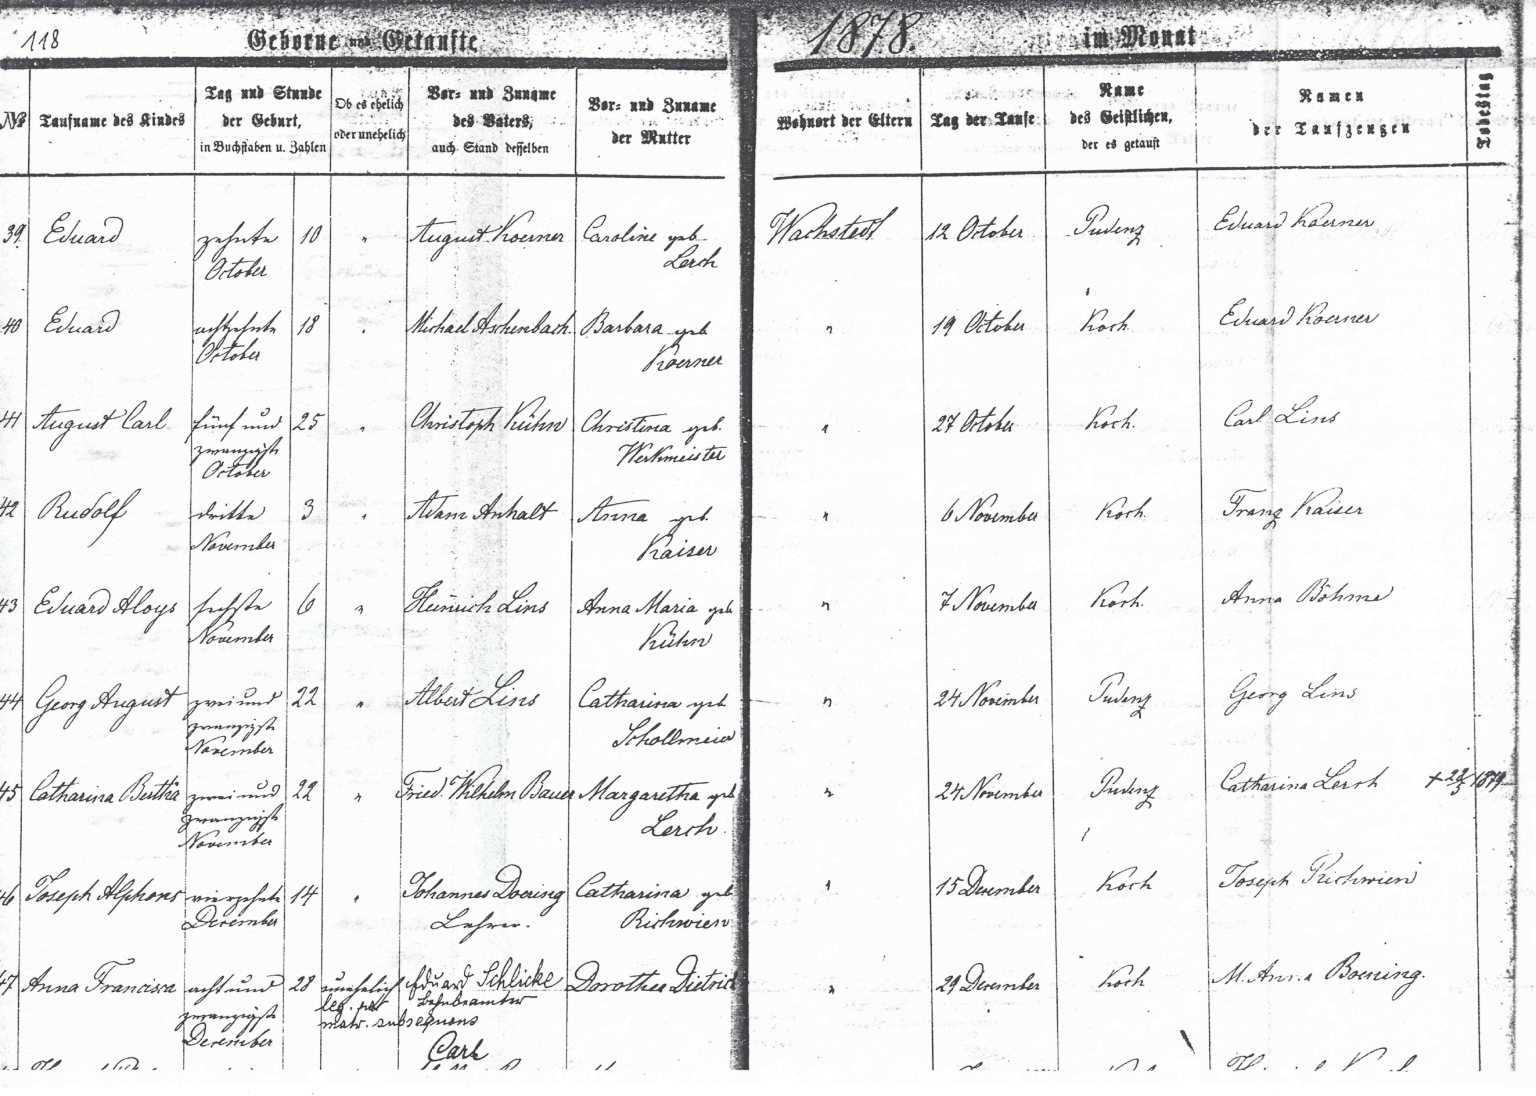 118 Geborne und Getaufte 1878. im Monat
№ Taufname des Kindes Tag und Stunde der Geburt, in Buchstaben u. Zahlen Ob es ehelich oder unehelich Vor- und Zuname des Vaters, auch Stand desselben Vor- und Zuname der Mutter Wohnort der Eltern Tag der Taufe Name des Geistlichen, der es getauft Namen der Taufzeugen Todestag
39. Eduard zehnte 10 " August Koerner Caroline geb Wachstedt 12 October Pudenz Eduard Koerner
October Lerch
40 Eduard achtzehnte 18 " Michael Aschenbach Barbara geb " 19 October Koch Eduard Koerner
October Koerner
41 August Carl fünf und 25 " Christoph Kühn Christina geb. " 27 October Koch. Carl Lins
zwanzigste Werkmeister
October
42 Rudolf dritte 3 " Adam Anhalt Anna geb. " 6 November Koch Franz Kaiser
November Kaiser
43 Eduard Aloys sechste 6 " Heinrich Lins Anna Maria geb " 7 November Koch. Anna Böhme
November Kühn
44 Georg August zwei und 22 " Albert Lins Catharina geb " 24 November Pudenz Georg Lins
zwanzigste Schollmeier
November
45 Catharina Bertha zwei und 22 " Fried. Wilhelm Bauer Margaretha geb " 24 November Pudenz Catharina Lerch + 22/3 1879
zwanzigste Lerch.
November
46 Joseph Alphons vierzehnte 14 " Johannes Doering Catharina geb " 15 December Koch Joseph Richwien
December Lehrer. Richwien
47 Anna Francisca acht und 28 unehelich Eduard Schlicke Dorothea Dietrich " 29 December Koch M. Anna Boening.
zwanzigste leg. per Bahnbeamter
December matr. subsequens
Carl